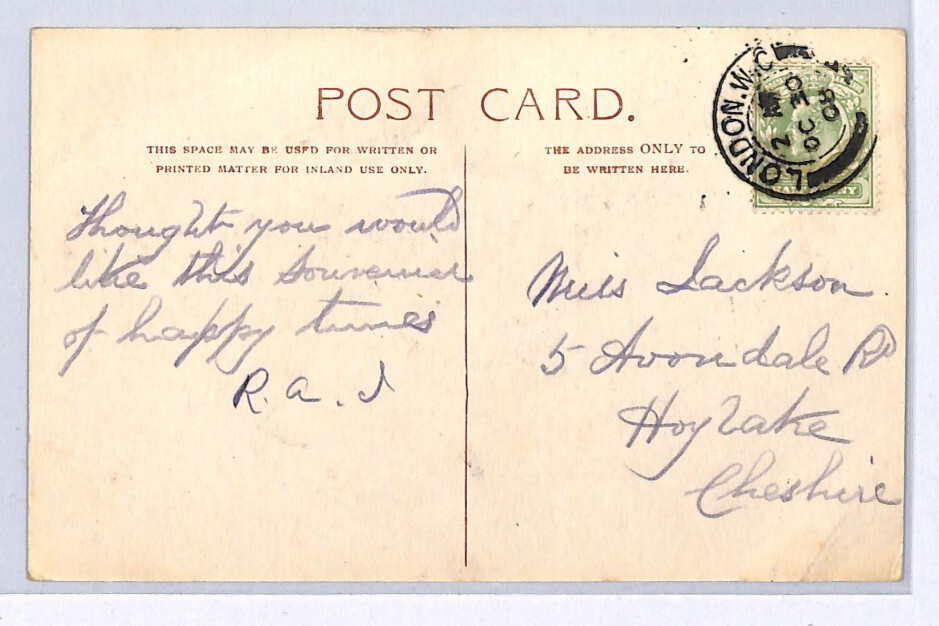 POST CARD.
THIS SPACE MAY BE USED FOR WRITTEN OR
PRINTED MATTER FOR INLAND USE ONLY.
THE ADDRESS ONLY TO
BE WRITTEN HERE.
LONDON. W.C
OC 30
08
Thought you would
like this Souvenir
of happy times
R. a. J
Miss Jackson
5 Avondale Rd
Hoylake
Cheshire